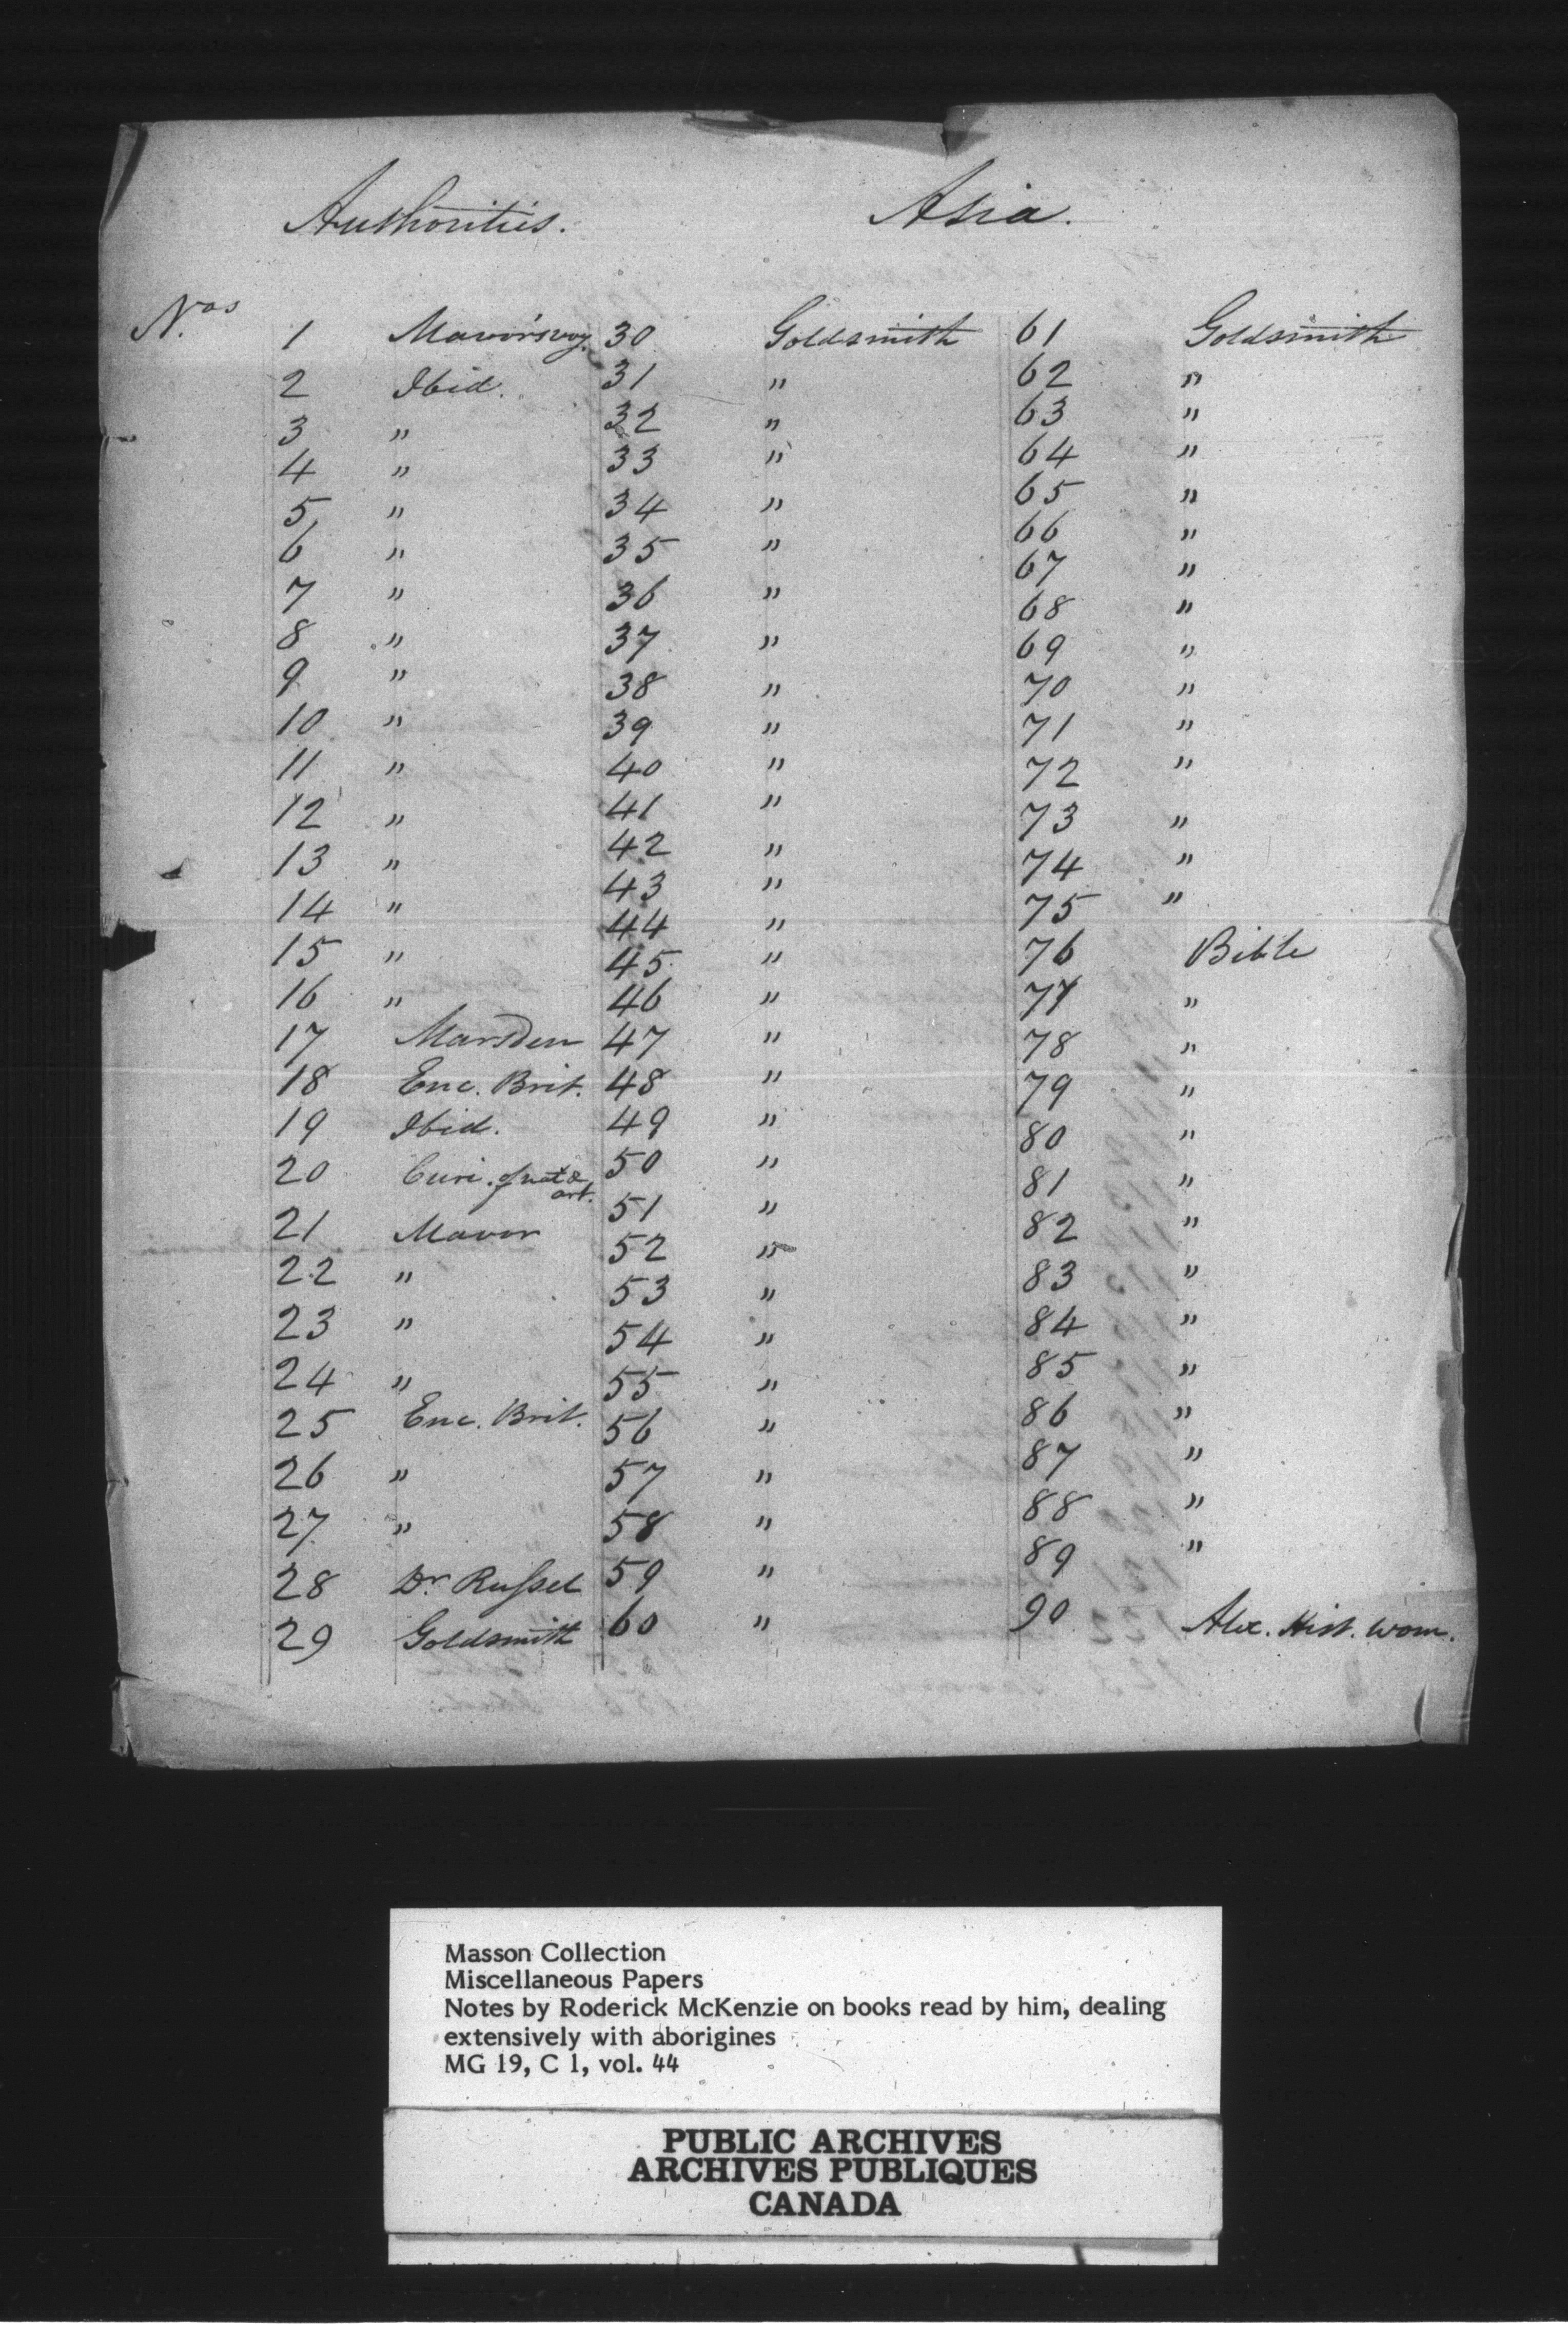 Authorities. Asia.
Nos 1 Mavor's voy. 30 Goldsmith 61 Goldsmith
2 Ibid. 31 " 62 "
3 " 32 " 63 "
4 " 33 " 64 "
5 " 34 " 65 "
6 " 35 " 66 "
7 " 36 " 67 "
8 " 37 " 68 "
9 " 38 " 69 "
10 " 39 " 70 "
11 " 40 " 71 "
12 " 41 " 72 "
13 " 42 " 73 "
14 " 43 " 74 "
15 " 44 " 75 "
16 " 45 " 76 Bible
17 Marsden 46 " 77 "
18 Enc. Brit. 47 " 78 "
19 Ibid. 48 " 79 "
20 Curi. of nat & art. 49 " 80 "
21 Mavor 50 " 81 "
22 " 51 " 82 "
23 " 52 " 83 "
24 " 53 " 84 "
25 Enc. Brit. 54 " 85 "
26 " 55 " 86 "
27 " 56 " 87 "
28 Dr Russel 57 " 88 "
29 Goldsmith 58 " 89 "
59 " 90 Alex. Hist. wom.
60 "
Masson Collection
Miscellaneous Papers
Notes by Roderick McKenzie on books read by him, dealing
extensively with aborigines
MG 19, C 1, vol. 44
PUBLIC ARCHIVES
ARCHIVES PUBLIQUES
CANADA